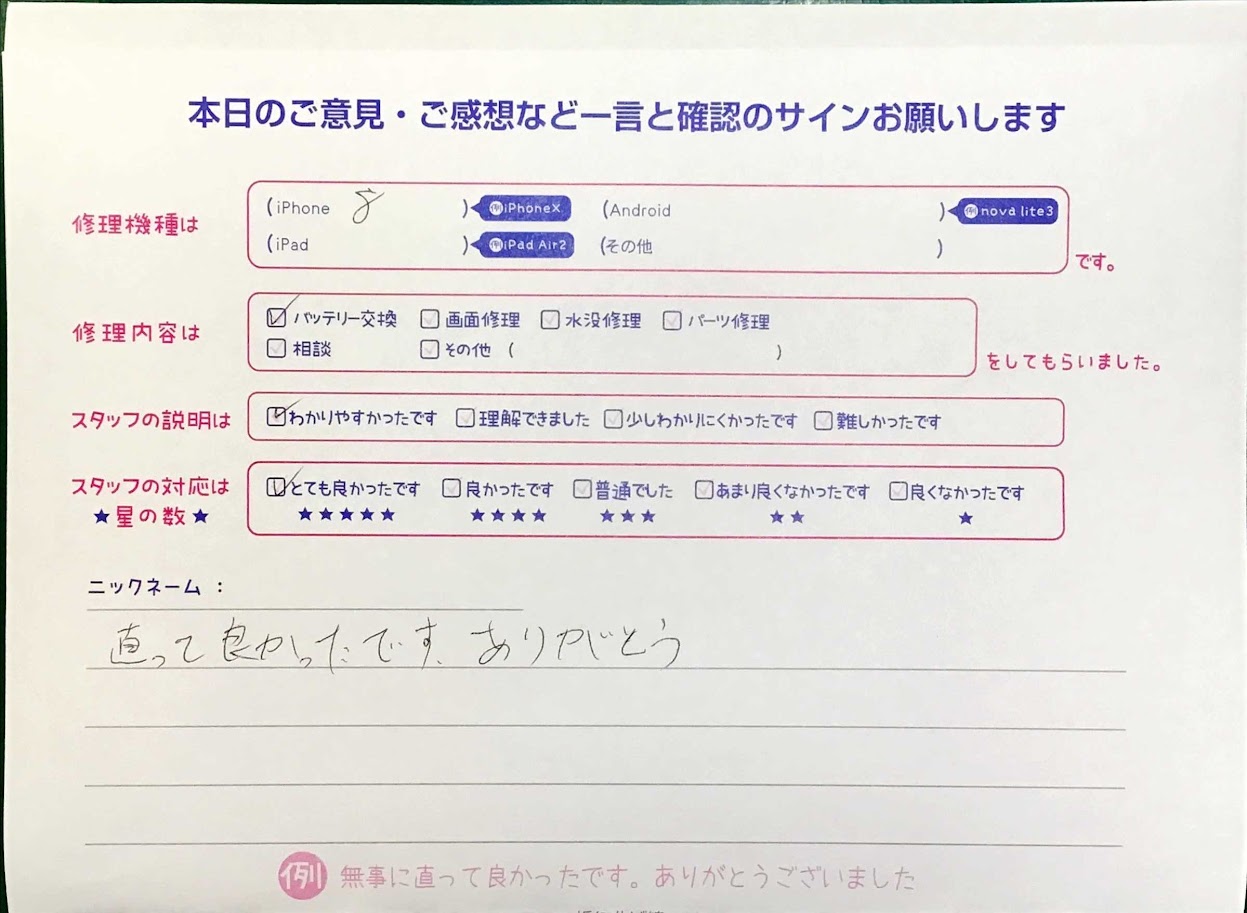 本日のご意見・ご感想など一言と確認のサインお願いします
修理機種は
(iPhone 8 ) 例iPhoneX (Android ) 例nova lite3
(iPad ) 例iPad Air2 (その他 )
です。
修理内容は
バッテリー交換 画面修理 水没修理 パーツ修理
相談 その他 ( )
をしてもらいました。
スタッフの説明は
わかりやすかったです 理解できました 少しわかりにくかったです 難しかったです
スタッフの対応は
★星の数★
とても良かったです 良かったです 普通でした あまり良くなかったです 良くなかったです
★★★★★ ★★★★ ★★★ ★★ ★
ニックネーム :
直って良かったです、ありがとう
例 無事に直って良かったです。ありがとうございました